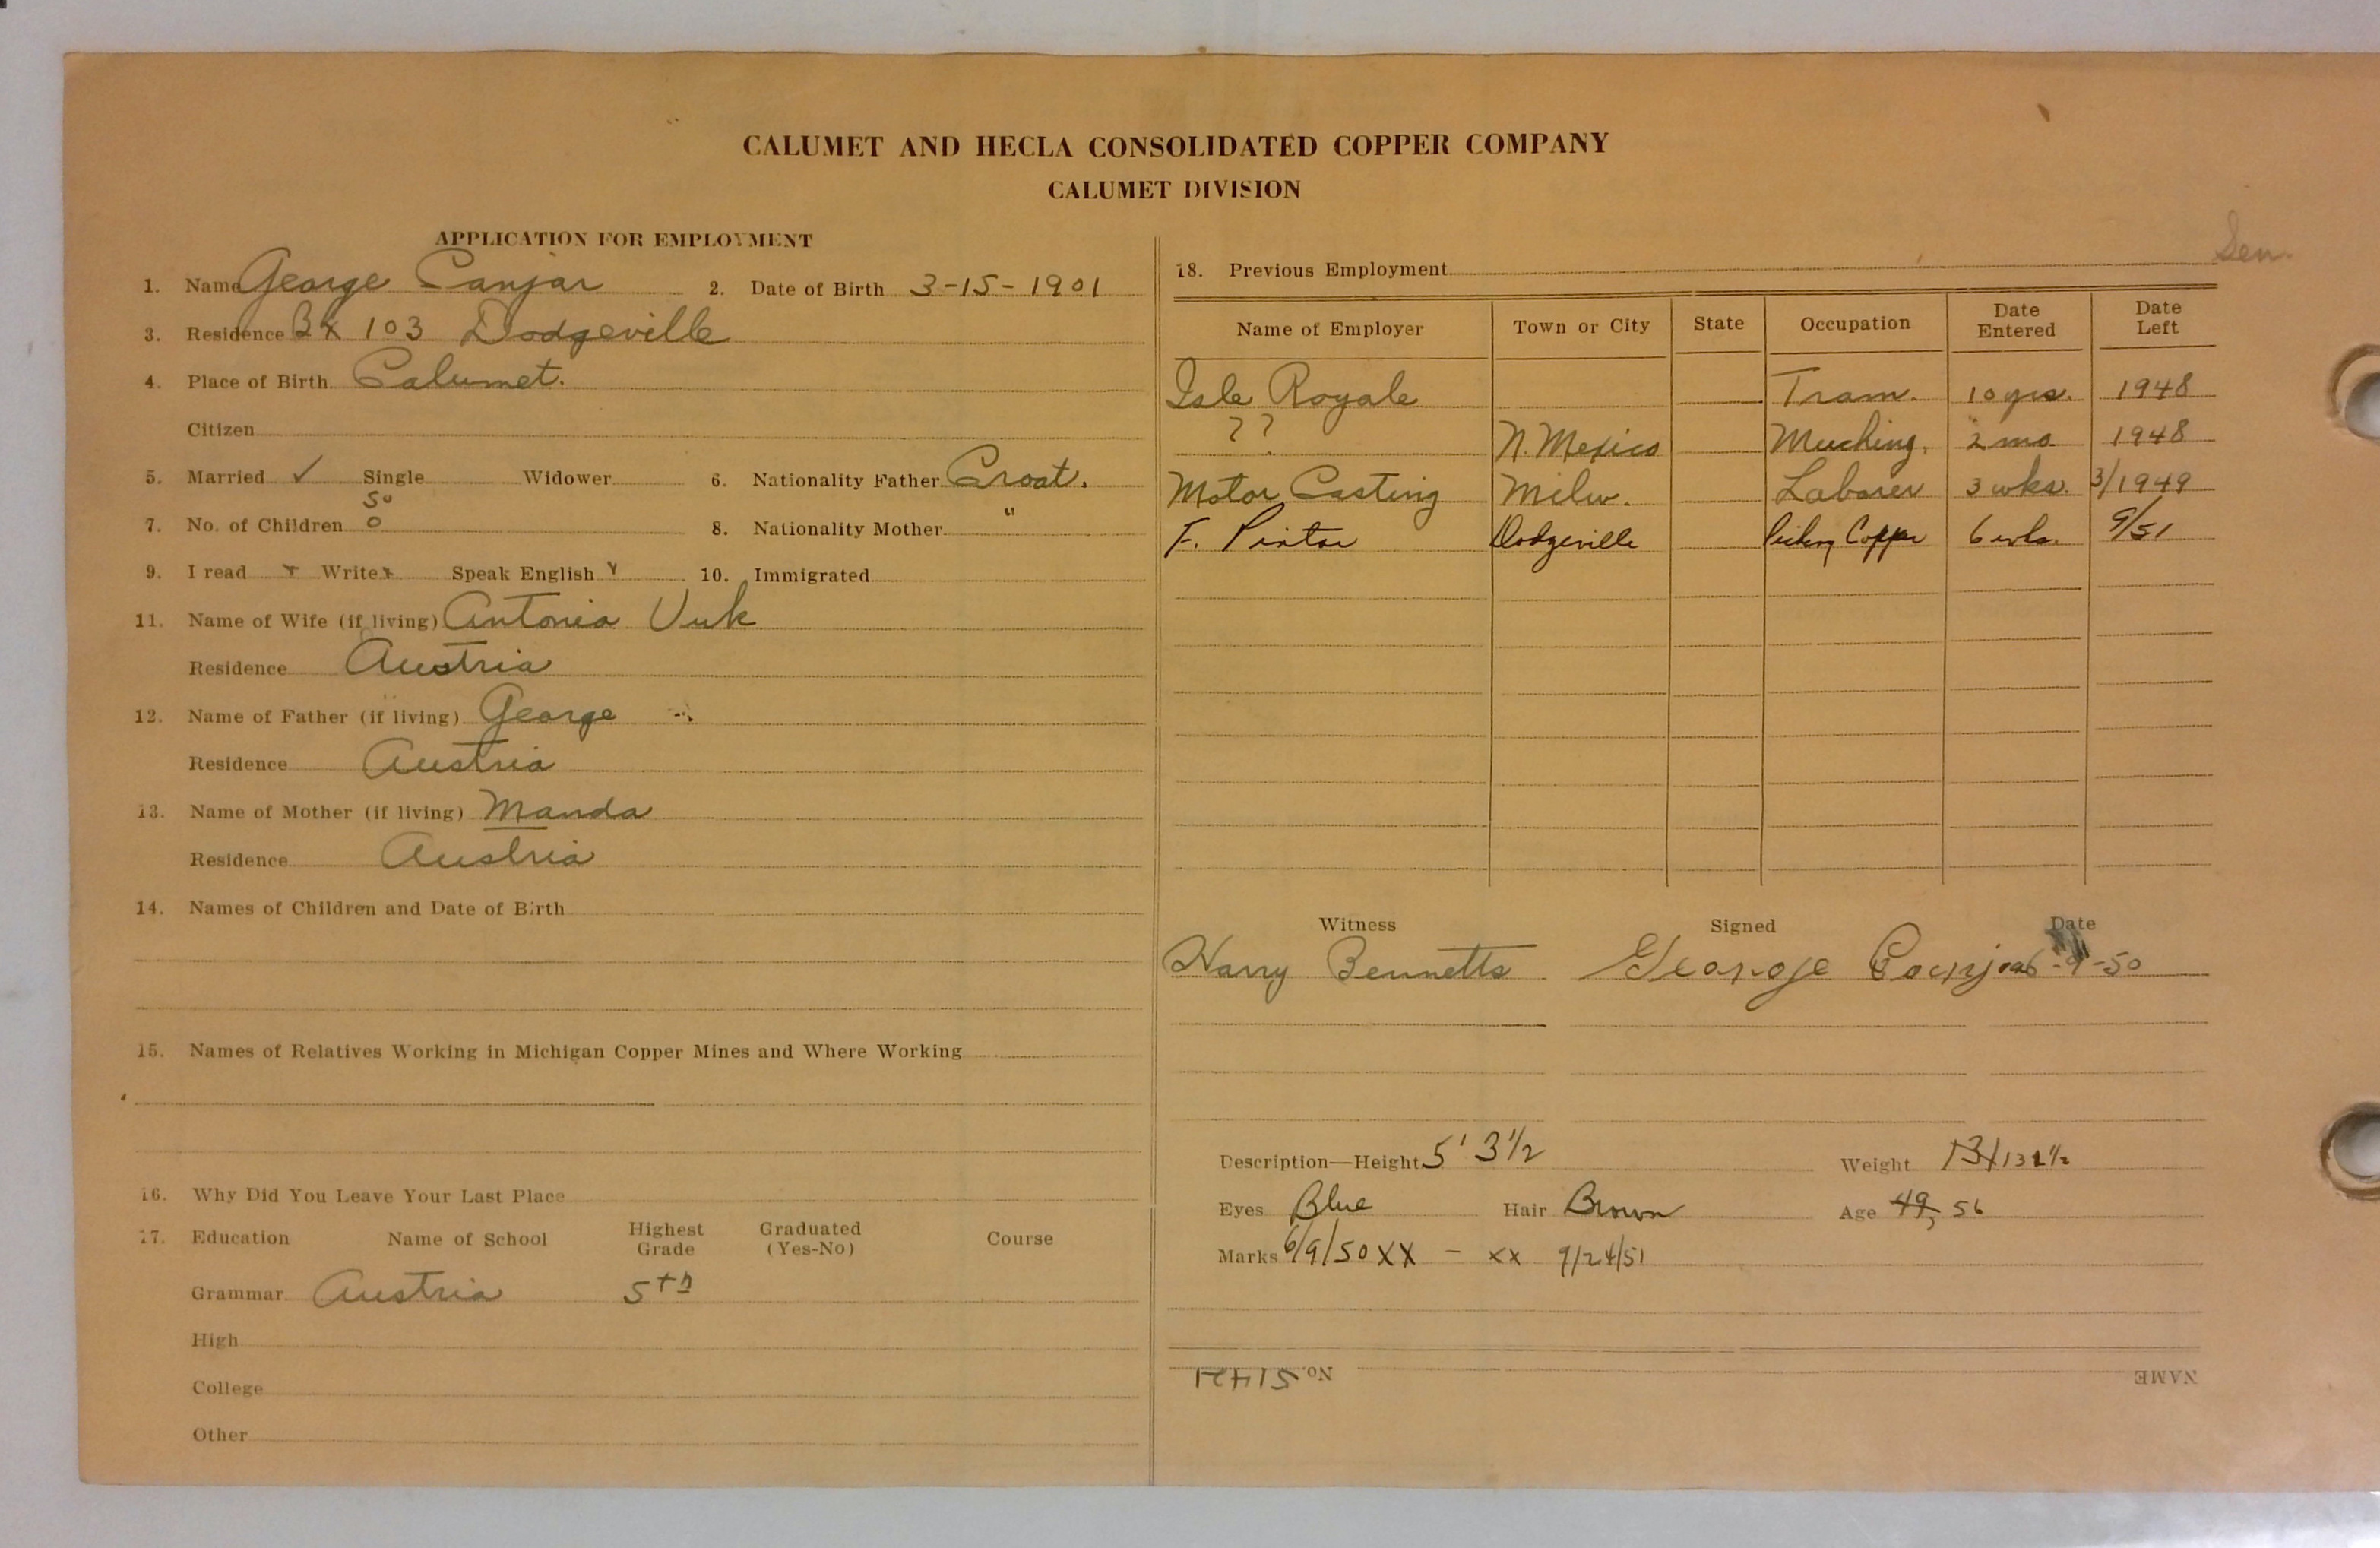 CALUMET AND HECLA CONSOLIDATED COPPER COMPANY
CALUMET DIVISION
APPLICATION FOR EMPLOYMENT
1. Name George Canjar 2. Date of Birth 3-15-1901
3. Residence Bx 103 Dodgeville
4. Place of Birth Calumet.
Citizen
5. Married ✓ Single Widower 6. Nationality Father Croat.
50
7. No. of Children 0 8. Nationality Mother "
9. I read Write Speak English 10. Immigrated
11. Name of Wife (if living) Antonia Vuk
Residence Austria
12. Name of Father (if living) George
Residence Austria
13. Name of Mother (if living) Manda
Residence Austria
14. Names of Children and Date of Birth
15. Names of Relatives Working in Michigan Copper Mines and Where Working
16. Why Did You Leave Your Last Place
17. Education Name of School Highest Grade Graduated (Yes-No) Course
Grammar Austria 5th
High
College
Other
Sen.
18. Previous Employment
Name of Employer Town or City State Occupation Date Entered Date Left
Isle Royale Tram. 10 yrs. 1948
?? N. Mexico Mucking. 2 mo 1948
Motor Casting Milw. Laborer 3 wks. 3/1949
F. Dodgeville Copper 6 wks. 9/51
Witness Signed Date
Harry Bennetts George Canjar 6-9-50
Description—Height 5' 3½ Weight 131½
Eyes Blue Hair Brown Age 49, 56
Marks 6/9/50 XX - xx 9/24/51
No. 51421 NAME